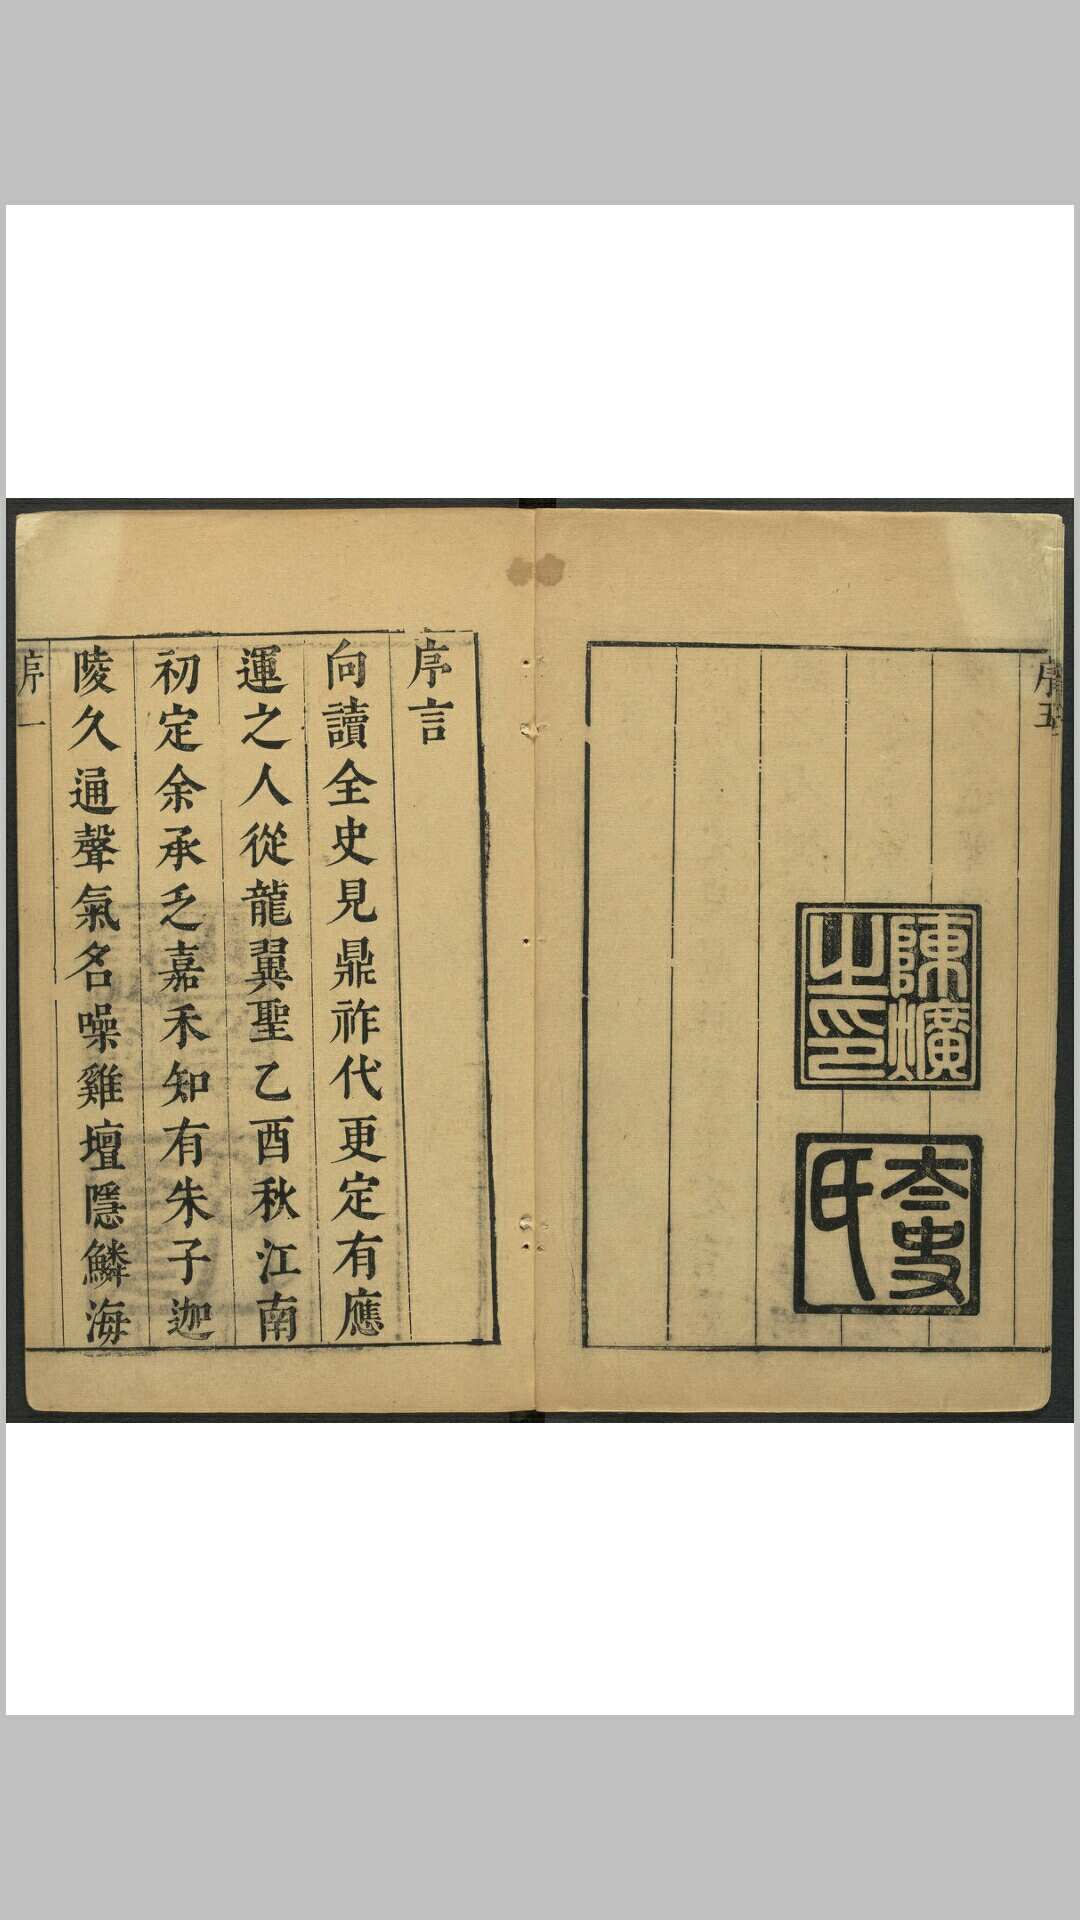 序五
陳爌之印
太史氏
序言
向讀全史見鼎祚代更定有應
運之人從龍翼聖乙酉秋江南
初定余承乏嘉禾知有朱子迦
陵久通聲氣名噪雞壇隱鱗海
序一